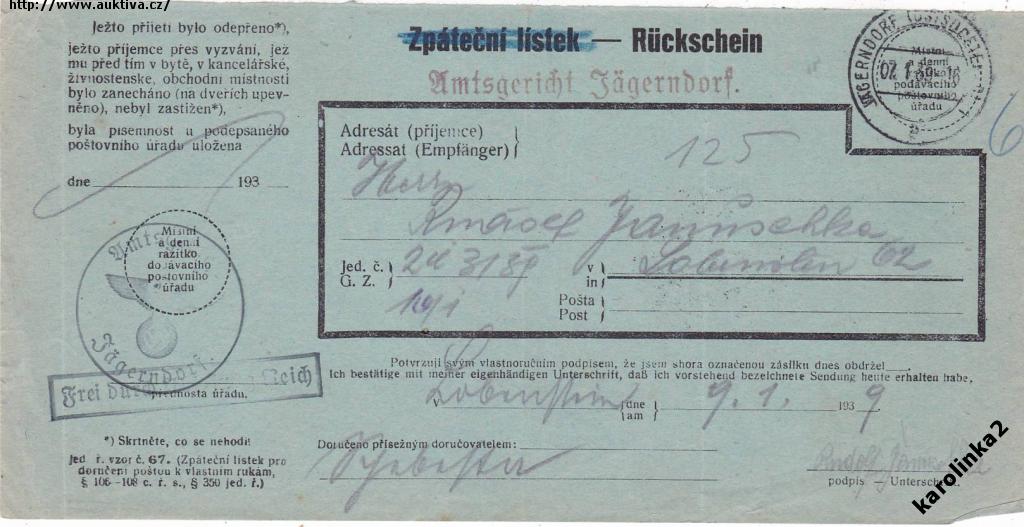 http://www.auktiva.cz/
Ježto přijetí bylo odepřeno*),
ježto příjemce přes vyzvání, jež
mu před tím v bytě, v kancelářské,
živnostenske, obchodní místnosti
bylo zanecháno (na dveřích upev-
něno), nebyl zastižen*),
byla písemnost u podepsaného
poštovního úřadu uložena
dne 193
Místní
a denní
razítko
dodávacího
poštovního
úřadu
Amts
Jägerndorf.
Frei durch Reich
přednosta úřadu.
*) Skrtněte, co se nehodí!
Jed. ř. vzor č. 67. (Zpáteční lístek pro
doručení poštou k vlastním rukám,
§ 106-108 c. ř. s., § 350 jed. ř.)
Zpáteční lístek — Rückschein
Amtsgericht Jägerndorf.
JÄGERNDORF
Místní
a denní
podávacího
poštovního
úřadu
6
Adresát (příjemce)
Adressat (Empfänger)
125
Herrn
Januschka
Jed. č.
G. Z.
v
in
62
Pošta
Post
Potvrzuji svým vlastnoručním podpisem, že jsem shora označenou zásilku dnes obdržel
Ich bestätige mit meiner eigenhändigen Unterschrift, daß ich vorstehend bezeichnete Sendung heute erhalten habe,
v Lobenstein dne am 9. 1. 193 9
Doručeno přísežným doručovatelem:
Schebesta
Rudolf
podpis — Unterschrift
karolinka2